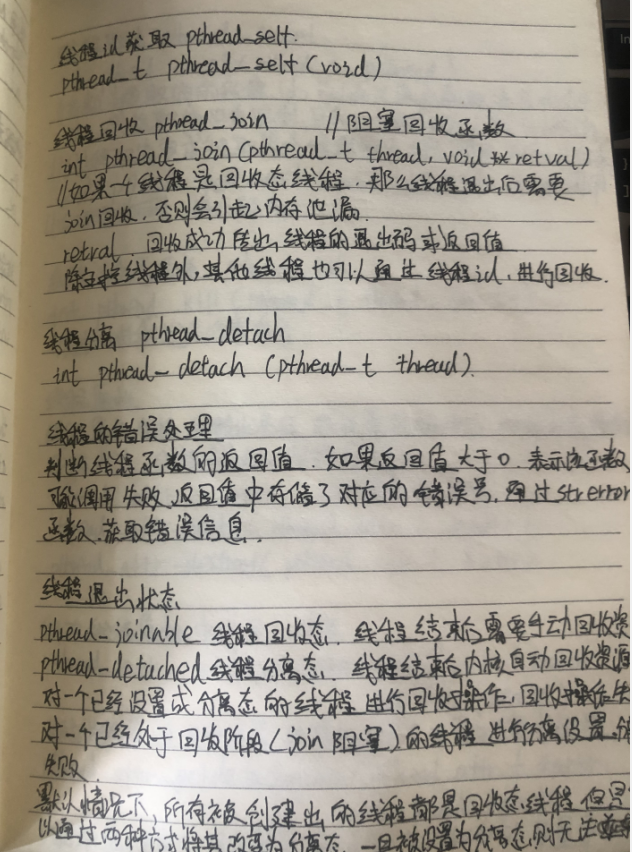 线程id获取 pthread_self.
pthread_t pthread_self(void)
线程回收 pthread_join //阻塞回收函数
int pthread_join(pthread_t thread, void **retval)
//如果一个线程是回收态线程, 那么线程退出后需要
join回收, 否则会引起内存泄漏.
retval. 回收成功传出线程的退出码或返回值
除主控线程外, 其他线程也可以通过线程id, 进行回收.
线程分离 pthread_detach
int pthread_detach (pthread_t thread).
线程的错误处理
判断线程函数的返回值. 如果返回值大于0. 表示该函数
可能调用失败, 返回值中存储了对应的错误号, 通过strerror
函数, 获取错误信息.
线程退出状态
pthread_joinable 线程回收态. 线程结束后需要手动回收资
pthread_detached 线程分离态. 线程结束后内核自动回收资源
对一个已经设置成分离态的线程进行回收操作, 回收操作失
对一个已经处于回收阶段(join 阻塞)的线程进行分离设置,
失败
默认情况下, 所有被创建出的线程都是回收态线程, 但是
以通过两种方式将其改变为分离态. 一旦被设置为分离态, 则无法